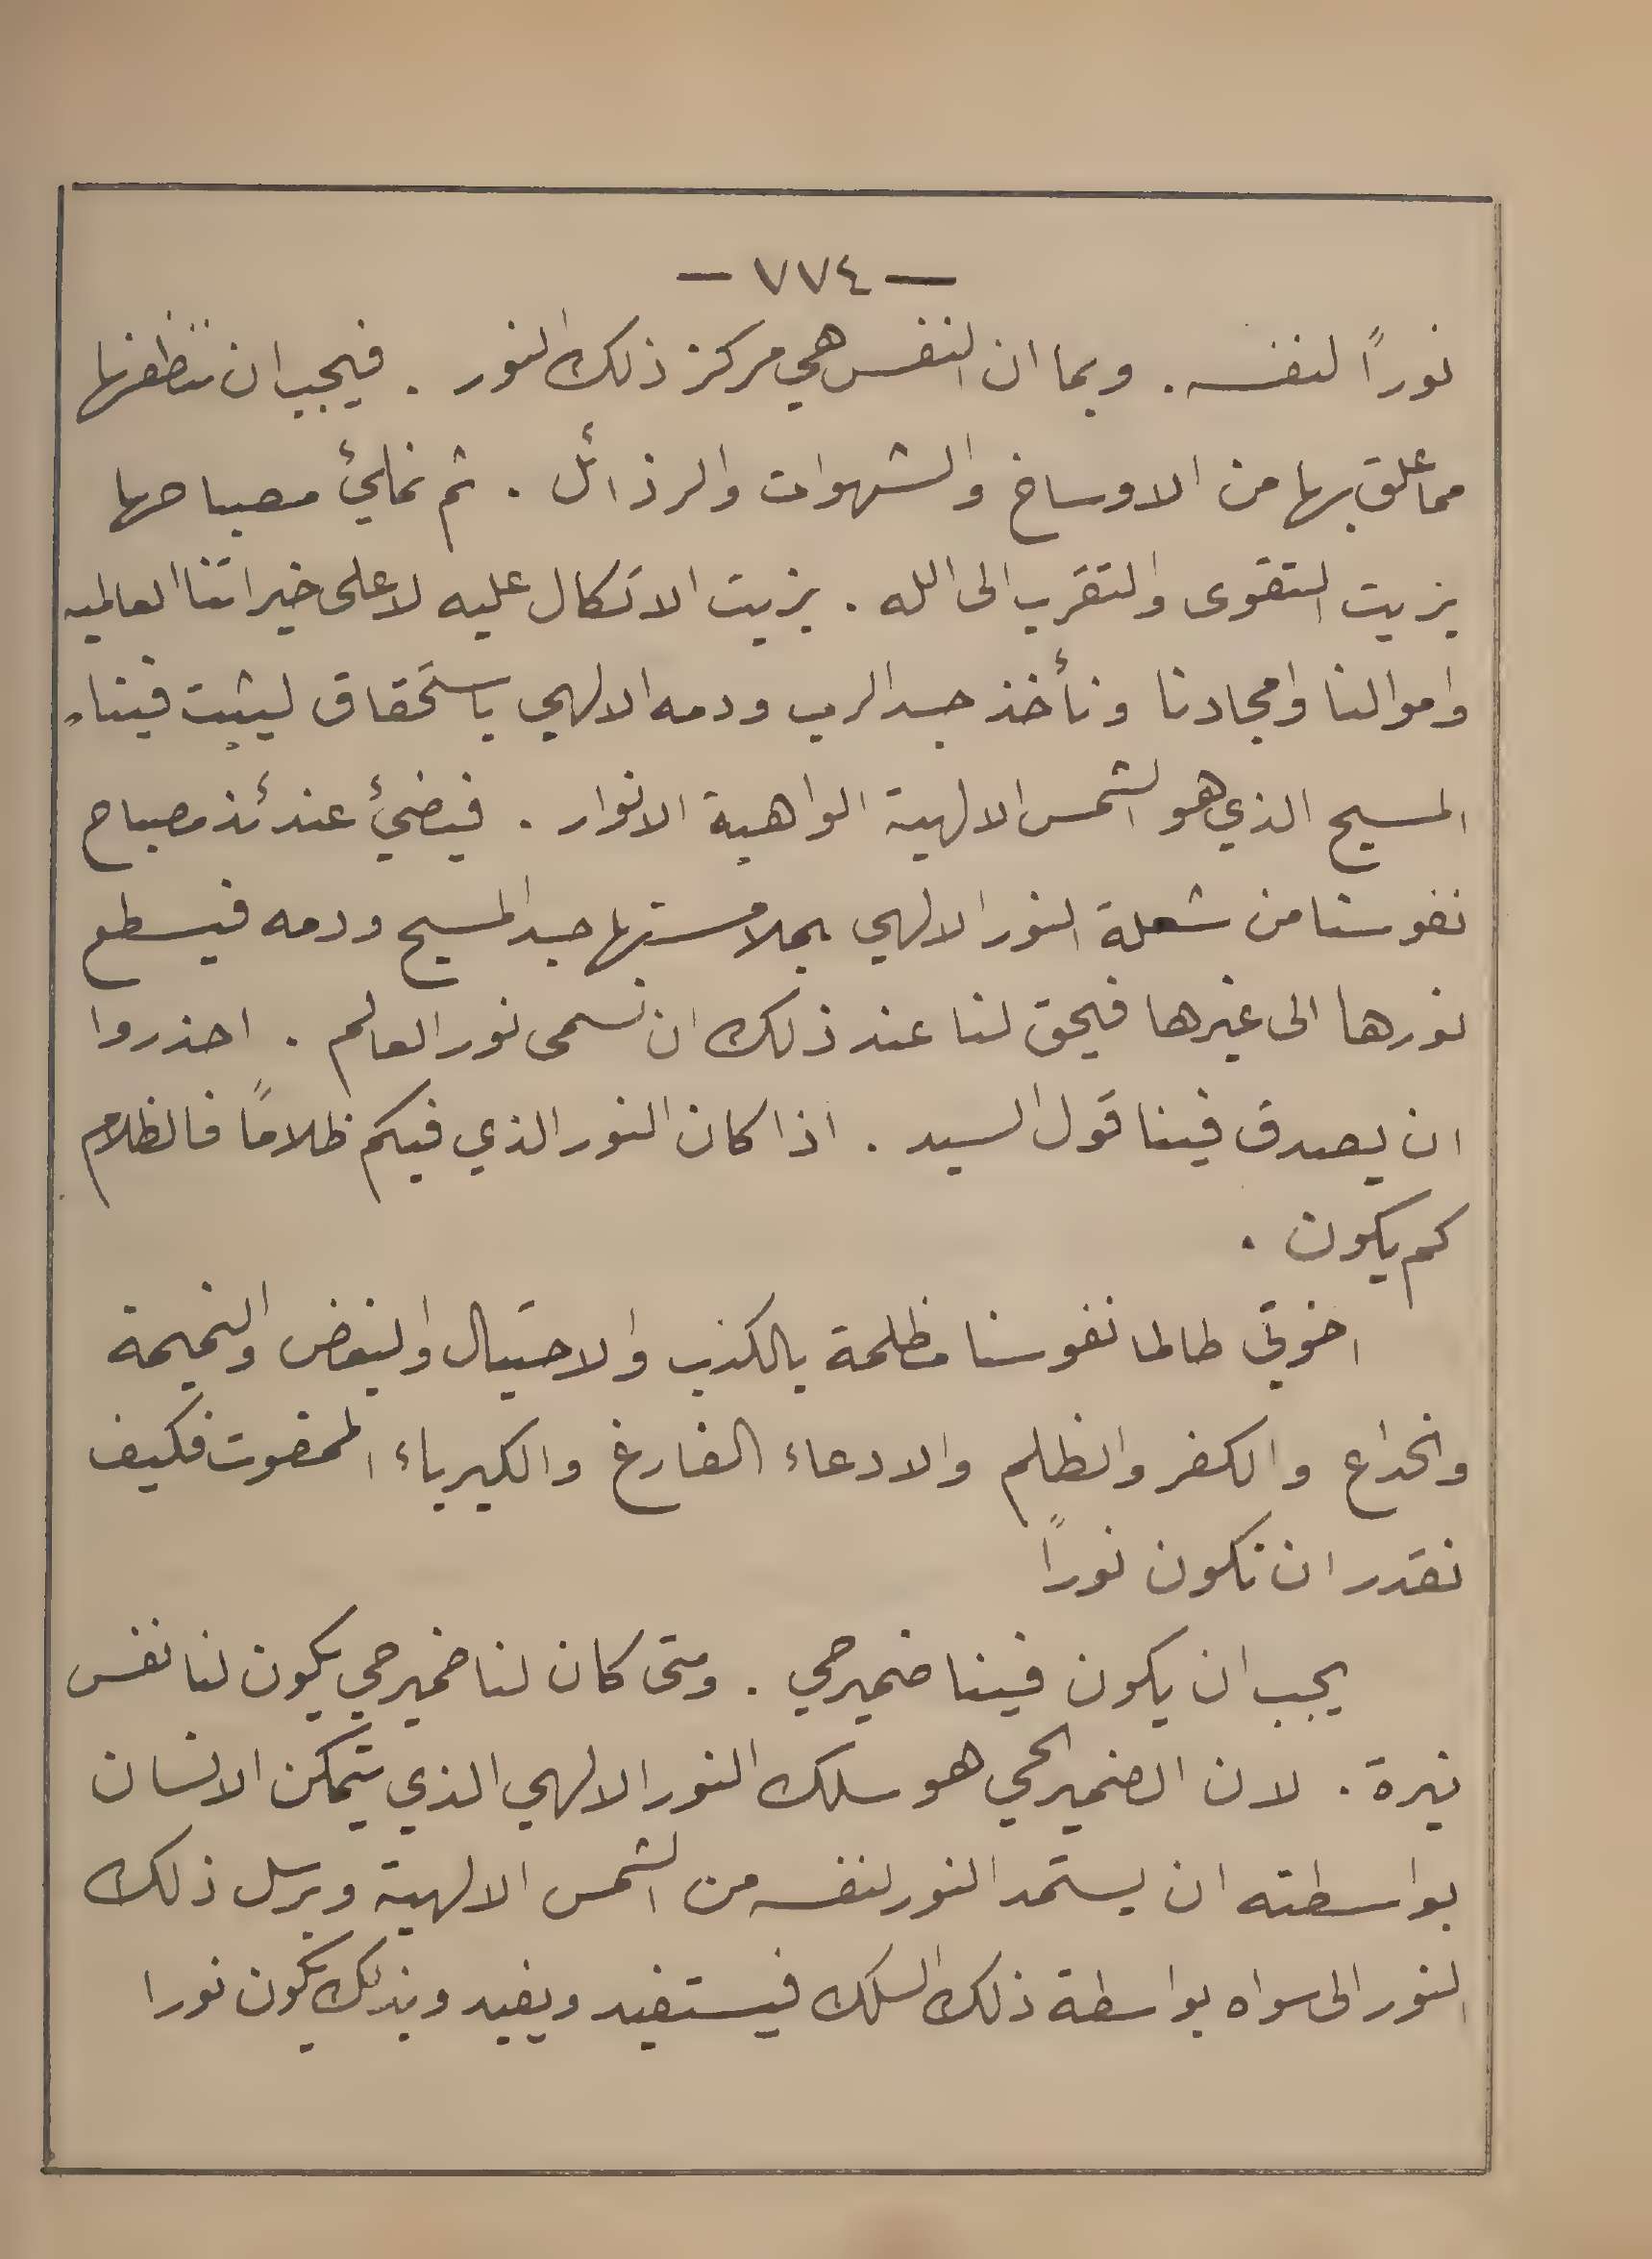 — ٧٧٤ —
نوراً لنفسه . وبما ان النفس هي مركز ذلك النور . فيجب ان ننظفها
مما علق بها من الاوساخ والشهوات والرذائل . ثم نملئ مصباحها
بزيت التقوى والتقرب الى الله . بزيت الاتكال عليه لا على خيراتنا العالميه
واموالنا وامجادنا ونأخذ جسد الرب ودمه الالهي باستحقاق ليثبت فينا
المسيح الذي هو الشمس الالهية الواهبة الانوار . فيضئ عندئذ مصباح
نفوسنا من شعلة النور الالهي بملامستها جسد المسيح ودمه فيسطع
نورها الى غيرها فيحق لنا عند ذلك ان نسمى نور العالم . احذروا
ان يصدق فينا قول السيد . اذا كان النور الذي فيكم ظلاماً فالظلام
كم يكون .
اخوتي طالما نفوسنا مظلمة بالكذب والاحتيال والبغض والنميمة
والخداع والكفر والظلم والادعاء الفارغ والكبرياء الممقوت فكيف
نقدر ان نكون نوراً
يجب ان يكون فينا ضمير حي . ومتى كان لنا ضمير حي يكون لنا نفس
نيرة . لان الضمير الحي هو سلك النور الالهي الذي يتمكن الانسان
بواسطته ان يستمد النور لنفسه من الشمس الالهية ويرسل ذلك
النور الى سواه بواسطة ذلك السلك فيستفيد ويفيد وبذلك يكون نورا